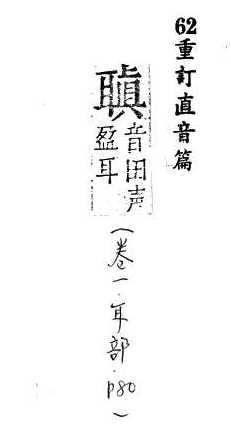 62重訂直音篇
瞋
音田声
盈耳
(卷一.耳部.p80)